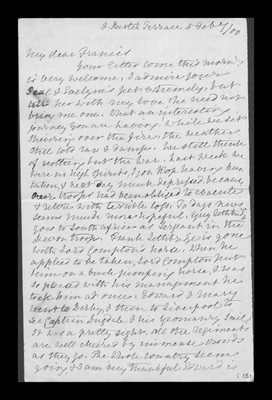 Terrace 5 Feb 7/00
My dear Francis
Your letter come this morning
is very welcome. I admire your
& Evelyn's pet extremely, but
tell her with my love she need not
bring me one. What an interesting
journey you are having. While we sit
shivering over the fire, the weather
still cold raw & damp. We still think
of nothing but the war. Last week we
were in high spirits, Spion Kop having been
taken, & next day much depressed because
our troops had been obliged to evacuate
& retire with terrible loss. To days news
seems much more hopeful. Guy
goes to South Africa as Sergeant in the
Devon troop. Frank is gone
with Lord Compton's horse. When he
applied to be taken, Lord Compton put
him on a buck jumping horse, & was
so pleased with his management he
took him at once. Edward & Mary
went to Derby, & then to Liverpool to
see Captain Dugdale & his yeomanry sail
It was a pretty sight. All the regiments
are well cheered by immense crowds
as they go. The whole country seem
going, & I am very thankful is